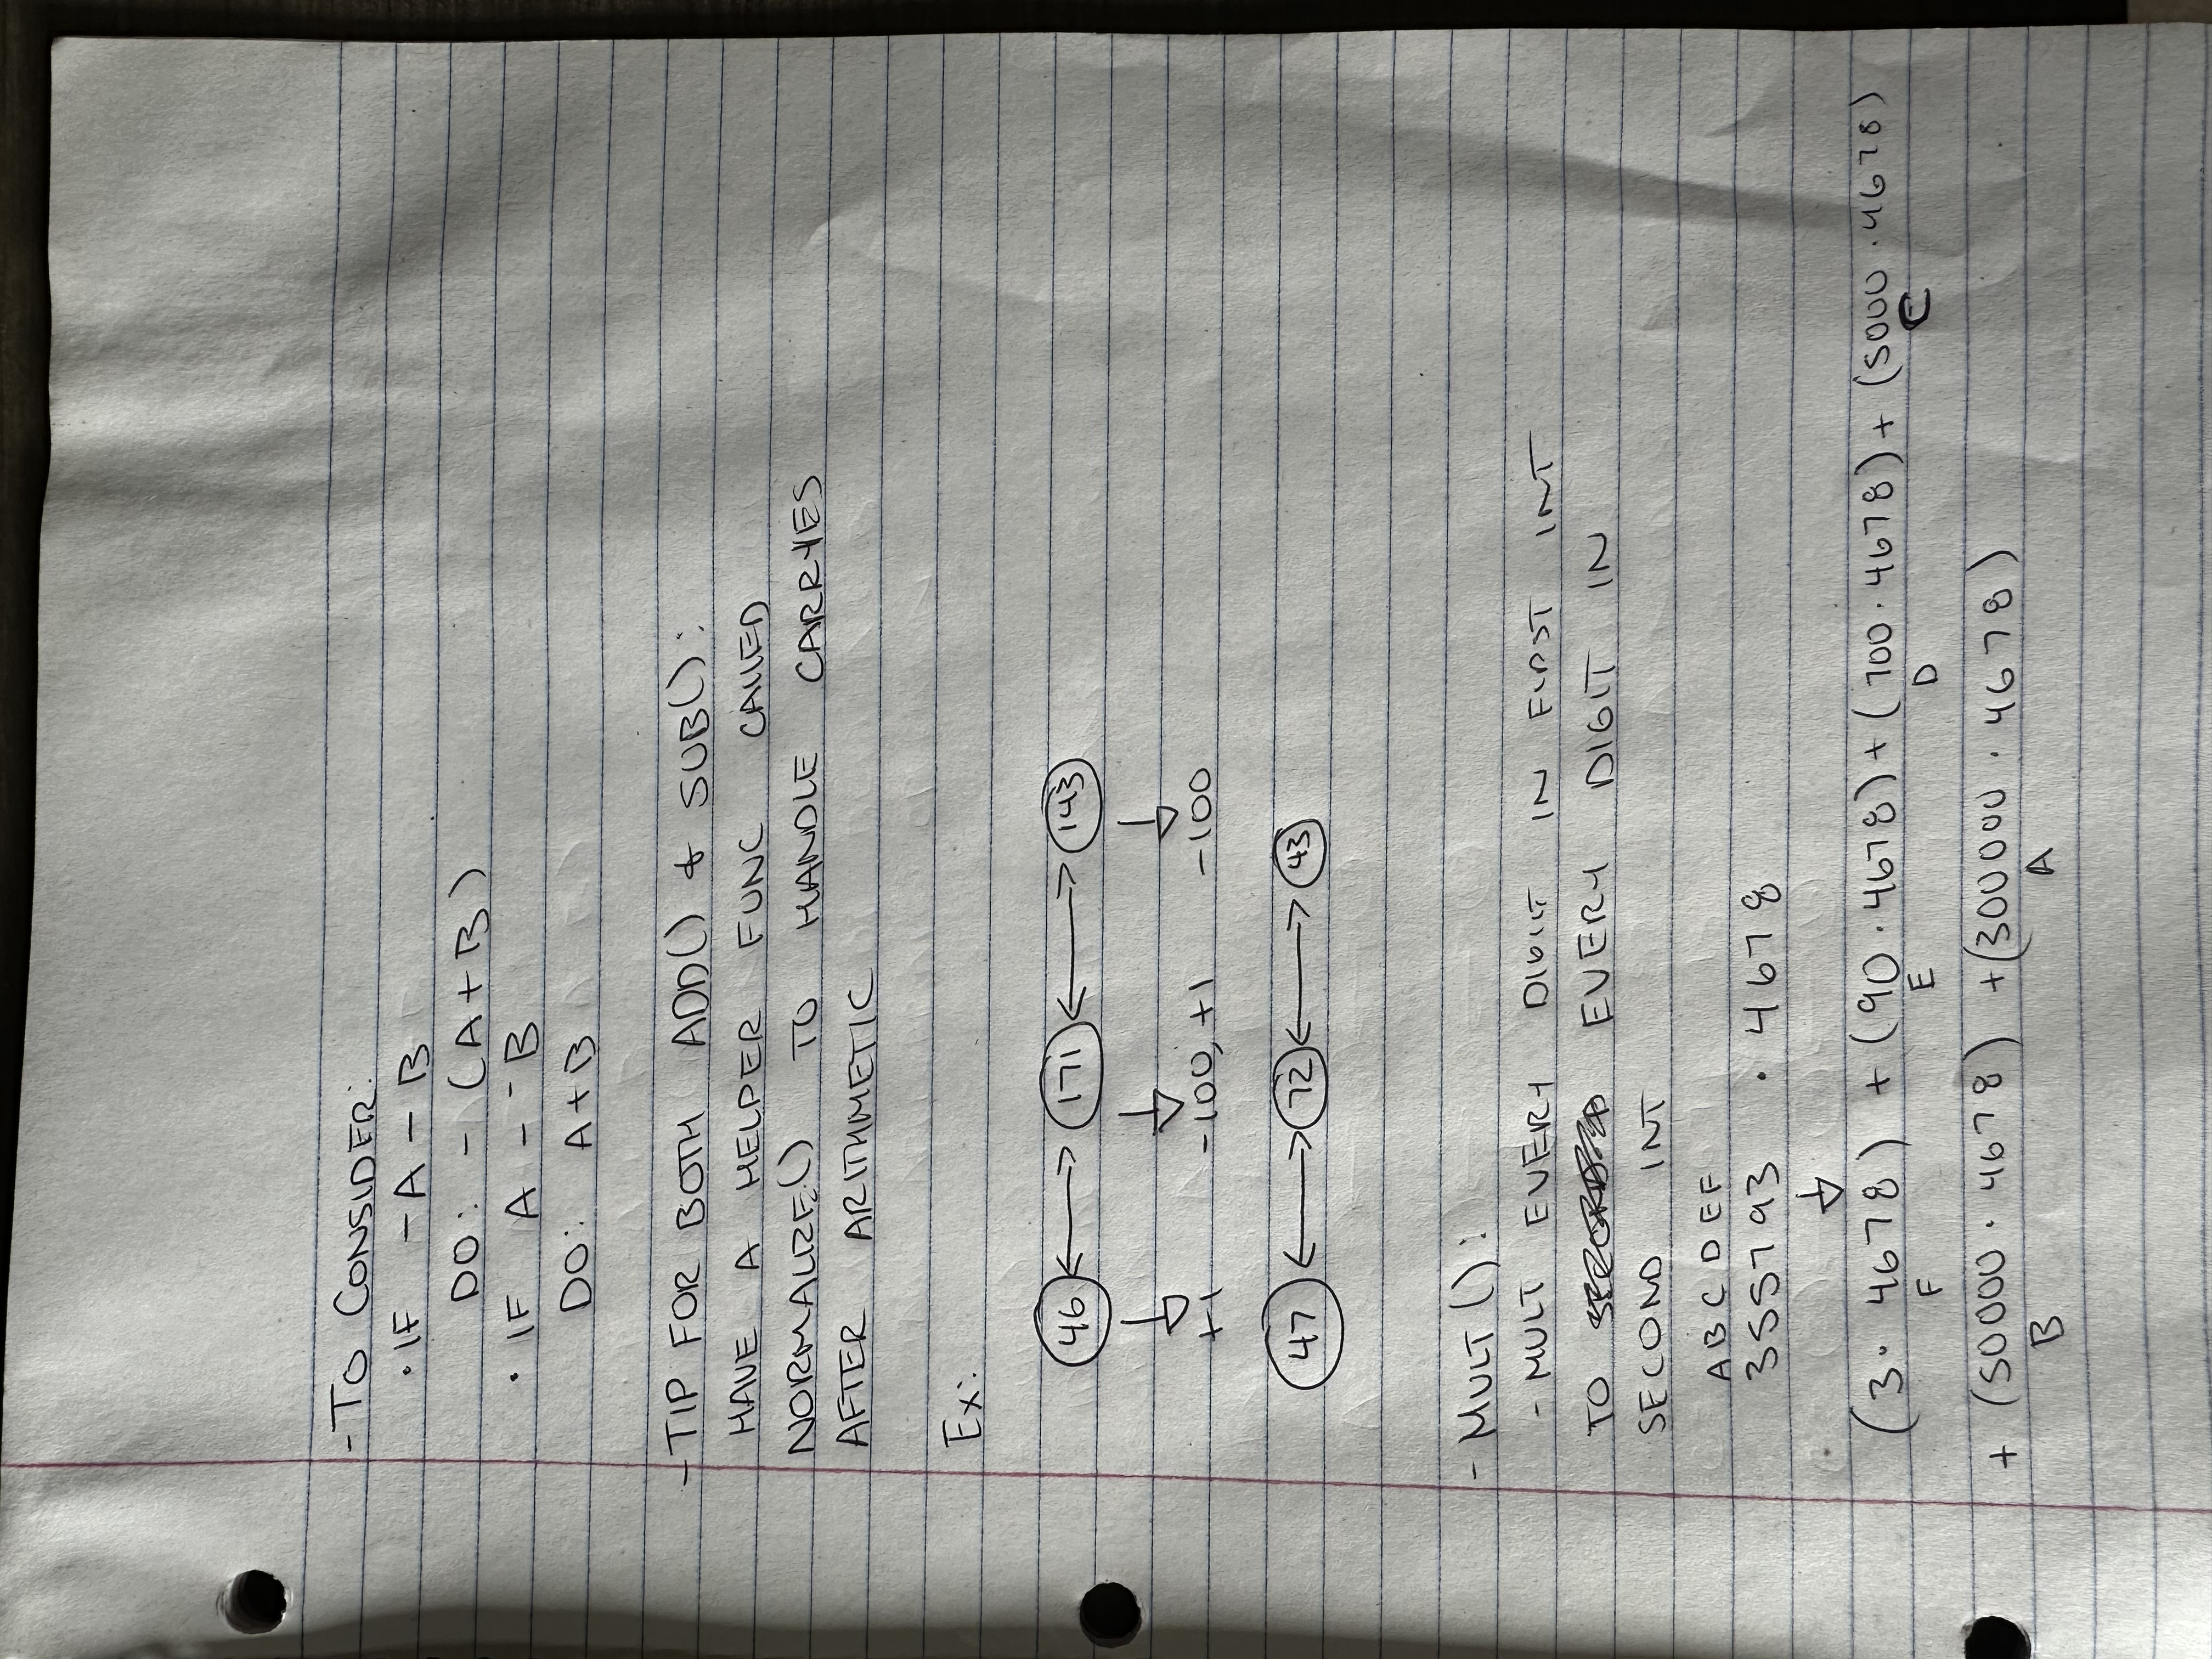 - TO CONSIDER:
· IF -A - B
DO: - (A+B)
· IF A - -B
DO: A+B
- TIP FOR BOTH ADD() & SUB():
HAVE A HELPER FUNC CALLED
NORMALIZE() TO HANDLE CARRYES
AFTER ARITHMETIC
Ex:
46 <-> 171 <-> 143
+1 -100, +1 -100
47 <-> 72 <-> 43
- MULT():
- MULT EVERY DIGIT IN FIRST INT
TO EVERY DIGIT IN
SECOND INT
A B C D E F
355793 · 4678
(3 · 4678) + (90 · 4678) + (700 · 4678) + (5000 · 4678)
F E D C
+ (50000 · 4678) + (300000 · 4678)
B A